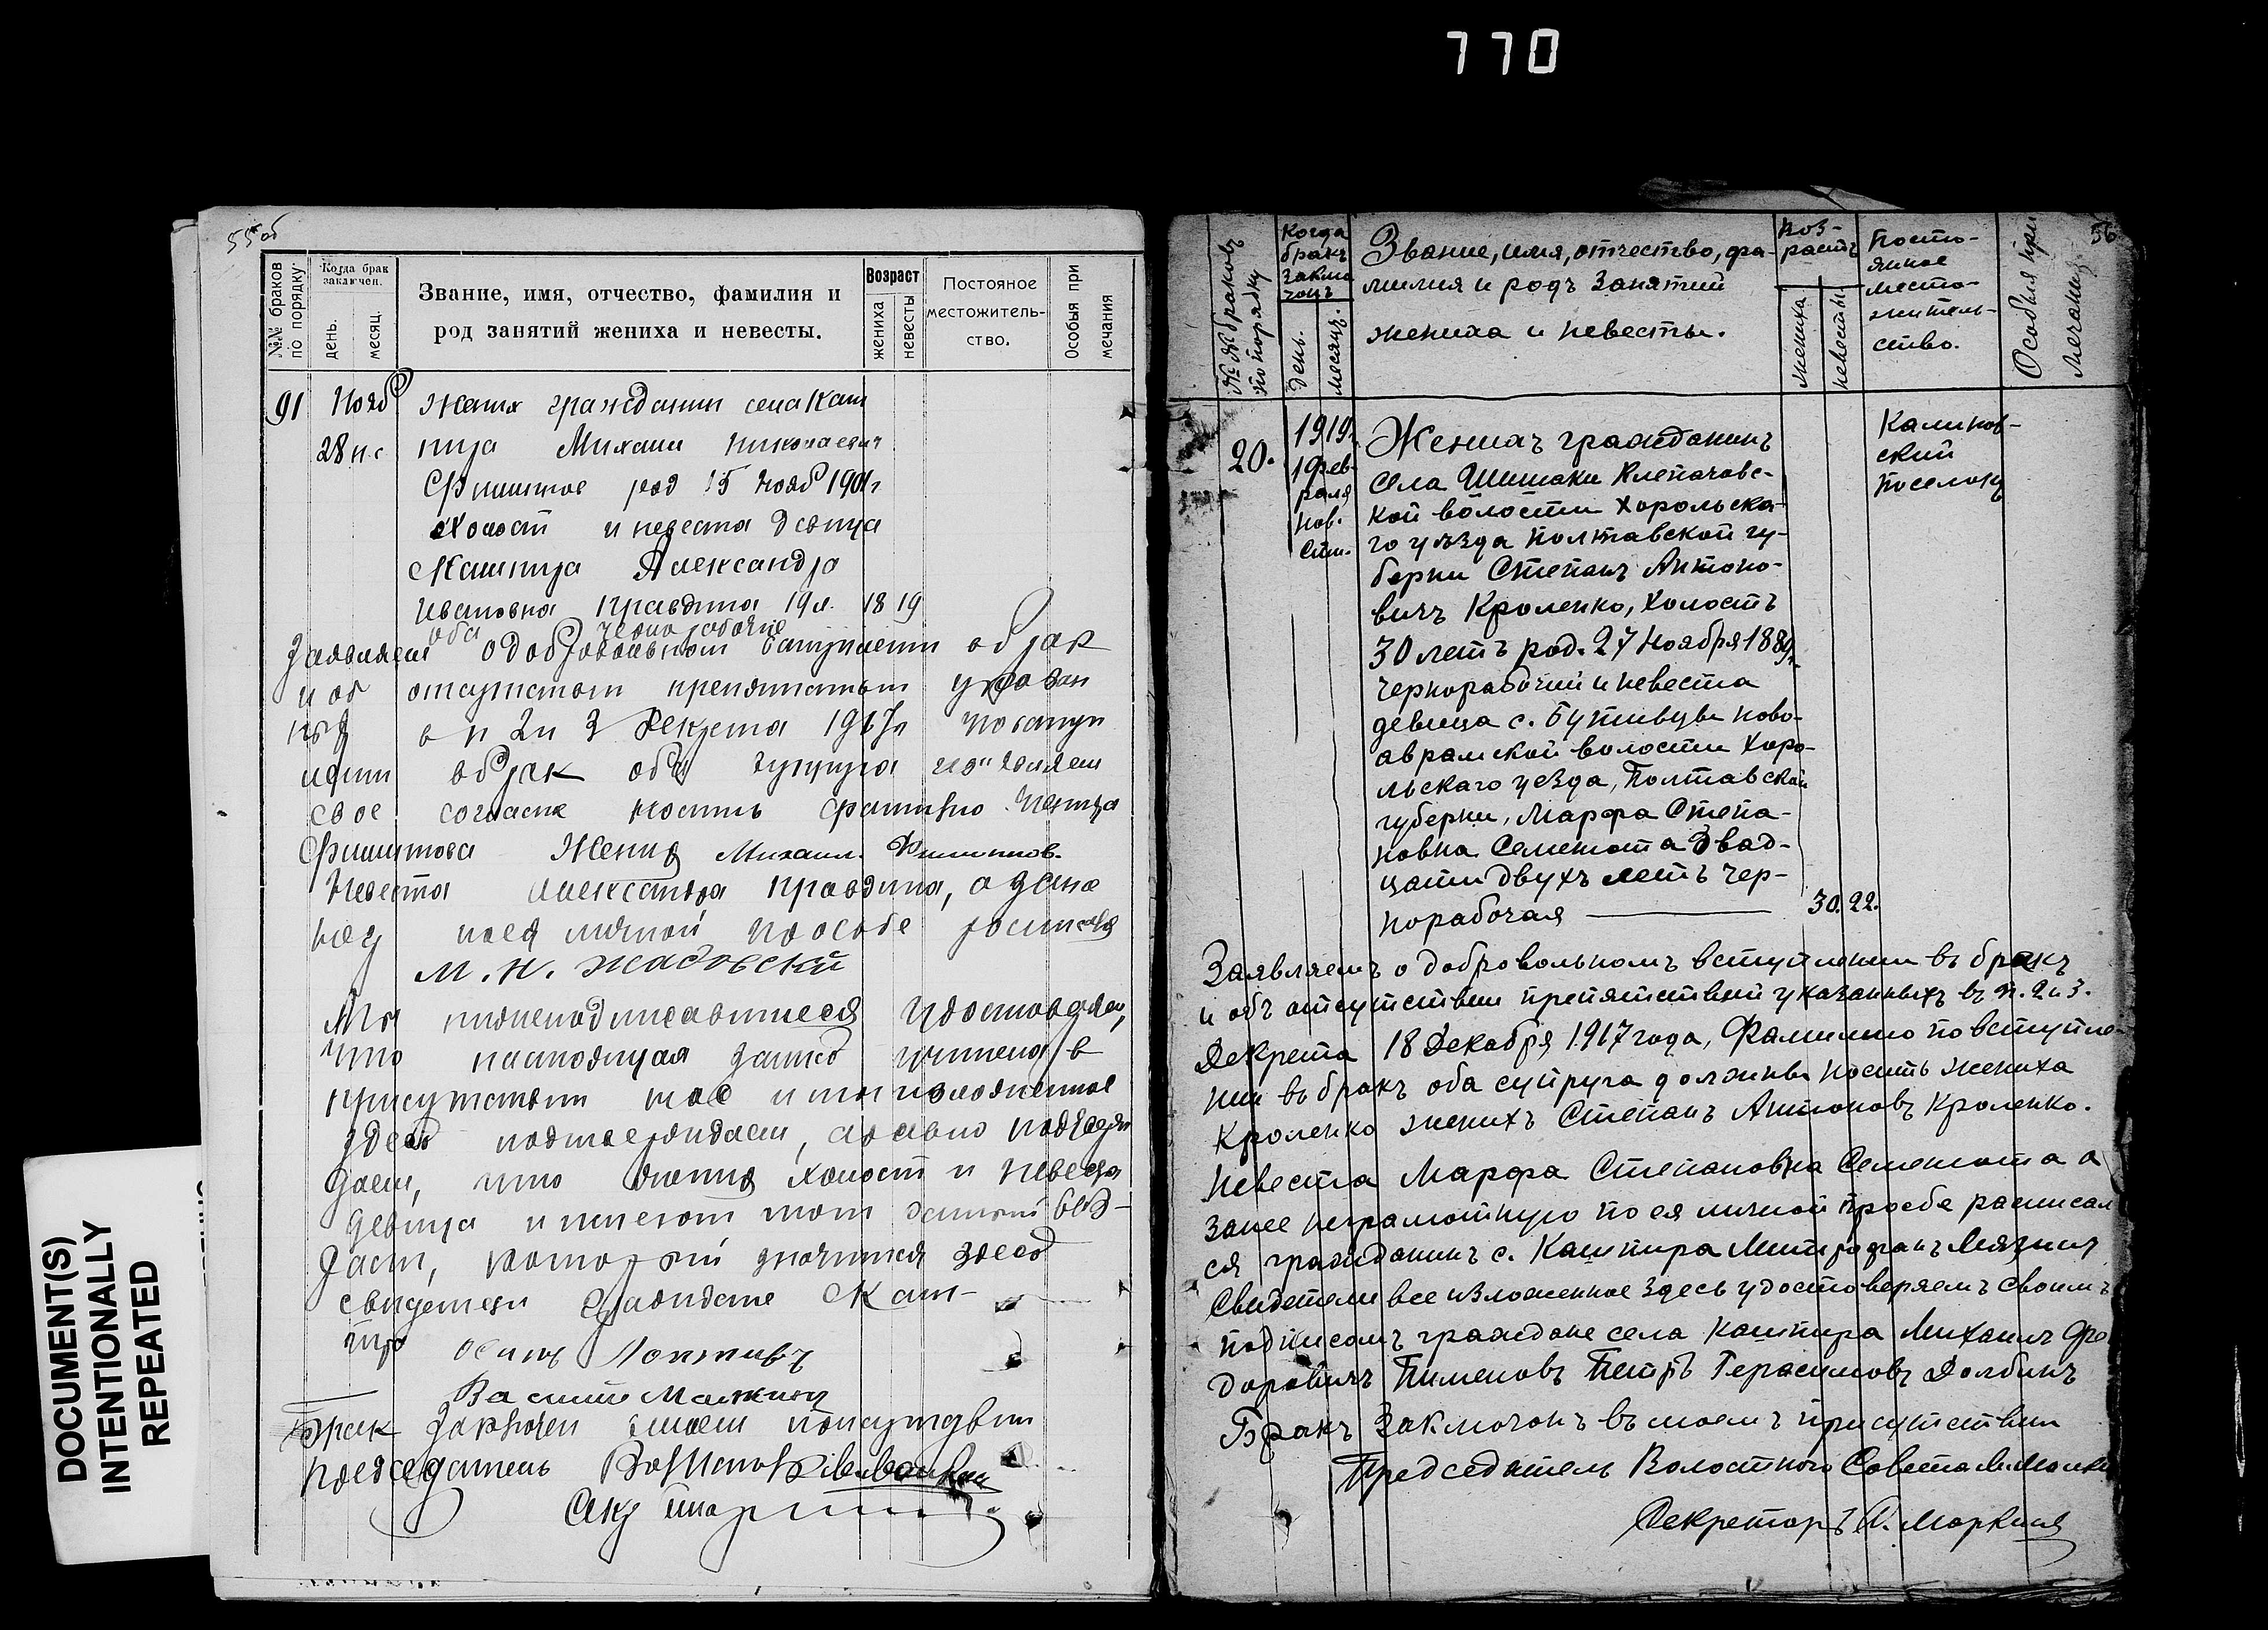 770
55об
№№ браков по порядку.
Когда брак заключен.
день.
месяц.
Звание, имя, отчество, фамилия и
род занятий жениха и невесты.
Возраст
жениха
невесты
Постоянное
местожитель-
ство.
Особыя при
мечания
91 Нояб жених гражданин села Каш
28 н.с пира Михаил Николаевич
Филиппов род 15 Нояб 1901г
холост и невеста девица
с Кашпира Александра
Ивановна Правдина 19 л. 18 19
оба чернорабочие
Заявляем о добровольном вступлении в брак
и об отсутствии препятствий указан
ных в п 2 и 3 Декрета 1917г По вступ
лении в брак оба супруга изъявляем
свое согласие носить фамилию жениха
Филиппова Жених Михаил Филиппов.
Невеста Александра Правдина, а за не
ея личной просьбе росписался
М. Н. Жадовский
Мы нижеподписавшиеся удостоверяем,
что настоящая запись учинена в
присутствии нас и мы изложенное
здесь подтверждаем, а равно подтверж
даем, что жених холост и невеста
девица и имеют тот самый воз-
раст, который значится здесь
свидетели граждане с Каш-
пир Осипъ Локтивъ
Василий Малкинъ
Брак заключен в моем присутствии
Председатель
Секретарь
56
№№ браковъ
по порядку
Когда
бракъ
заклю
чонъ
день.
месяцъ.
Звание, имя, отчество, фа-
милия и родъ занятий
жениха и невесты.
Воз-
растъ
жениха
невесты.
Посто-
янное
место-
житель-
ство.
Особыя при
мечания.
20.
1919.
19 фев-
раля
нов.
сти.
Женихъ гражданинъ
села Шишаки Клепачовс-
кой волости Хорольска-
го уезда Полтавской гу-
берни Степанъ Антоно-
вичъ Кроленко, Холостъ
30 летъ род. 27 Ноября 1889г.
чернорабочий и невеста
девица с. Бутивцы Ново-
аврамской волости Хоро-
льскаго уезда, Полтавской
губерни, Марфа Степа-
новна Семенота Двад-
цати двухъ летъ чер-
норабочая 30. 22.
Калинов-
ский
поселокъ
Заявляемъ о добровольномъ вступлении въ бракъ
и объ отсутствии препятствий указанныхъ въ п. 2 и 3.
Декрета 18 Декабря 1917 года, Фамилию по вступле-
нии въ бракъ оба супруга должны носить жениха
Кроленко женихъ Степанъ Антоновъ Кроленко.
Невеста Марфа Степановна Семенота а
занее неграмотную по ея личной просбе расписал
ся гражданинъ с. Кашпира Митрофанъ Мязинъ
Свидетели все изложенное здесь удостоверяемъ своимъ
подписомъ граждане села Кашпира Михаилъ Фе
доровичъ Пименовъ Петръ Герасимовъ Долбинъ
Бракъ Заключонъ въ моемъ присутствии
Председатель Волостного Совета
Секретаръ А. Маркинъ
DOCUMENT(S)
INTENTIONALLY
REPEATED